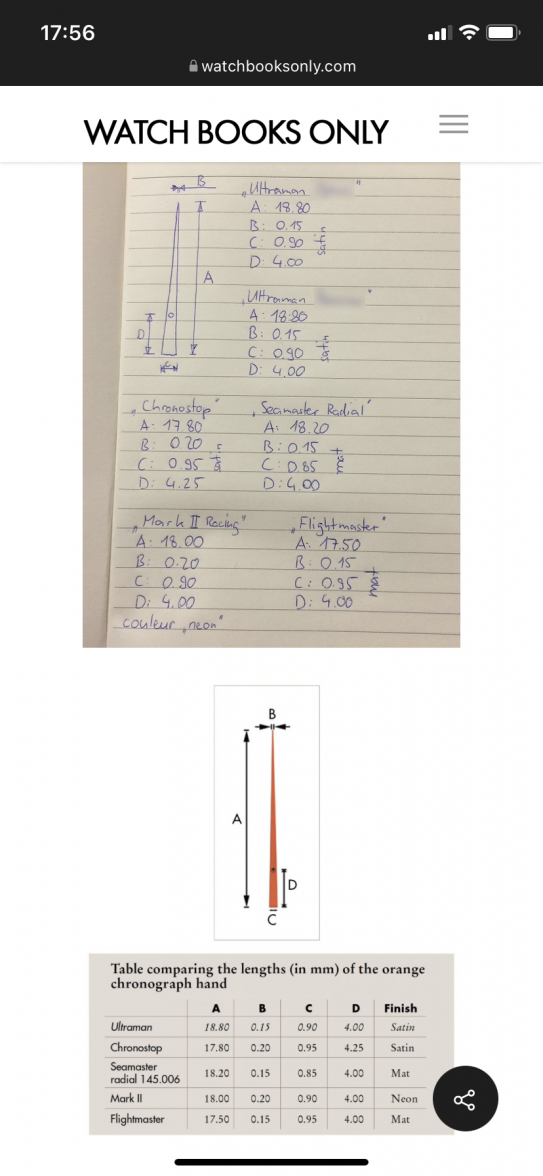 17:56
watchbooksonly.com
WATCH BOOKS ONLY
B
A
D
C
„Ultraman "
A: 18.80
B: 0.15
C: 0.90
D: 4.00
satin
„Ultraman "
A: 18.80
B: 0.15
C: 0.90
D: 4.00
satin
„Chronostop"
A: 17.80
B: 0.20
C: 0.95
D: 4.25
satin
„Seamaster Radial"
A: 18.20
B: 0.15
C: 0.85
D: 4.00
„Mark II Racing"
A: 18.00
B: 0.20
C: 0.90
D: 4.00
couleur „neon"
„Flightmaster"
A: 17.50
B: 0.15
C: 0.95
D: 4.00
B
A
D
C
Table comparing the lengths (in mm) of the orange
chronograph hand
A B C D Finish
Ultraman 18.80 0.15 0.90 4.00 Satin
Chronostop 17.80 0.20 0.95 4.25 Satin
Seamaster
radial 145.006 18.20 0.15 0.85 4.00 Mat
Mark II 18.00 0.20 0.90 4.00 Neon
Flightmaster 17.50 0.15 0.95 4.00 Mat